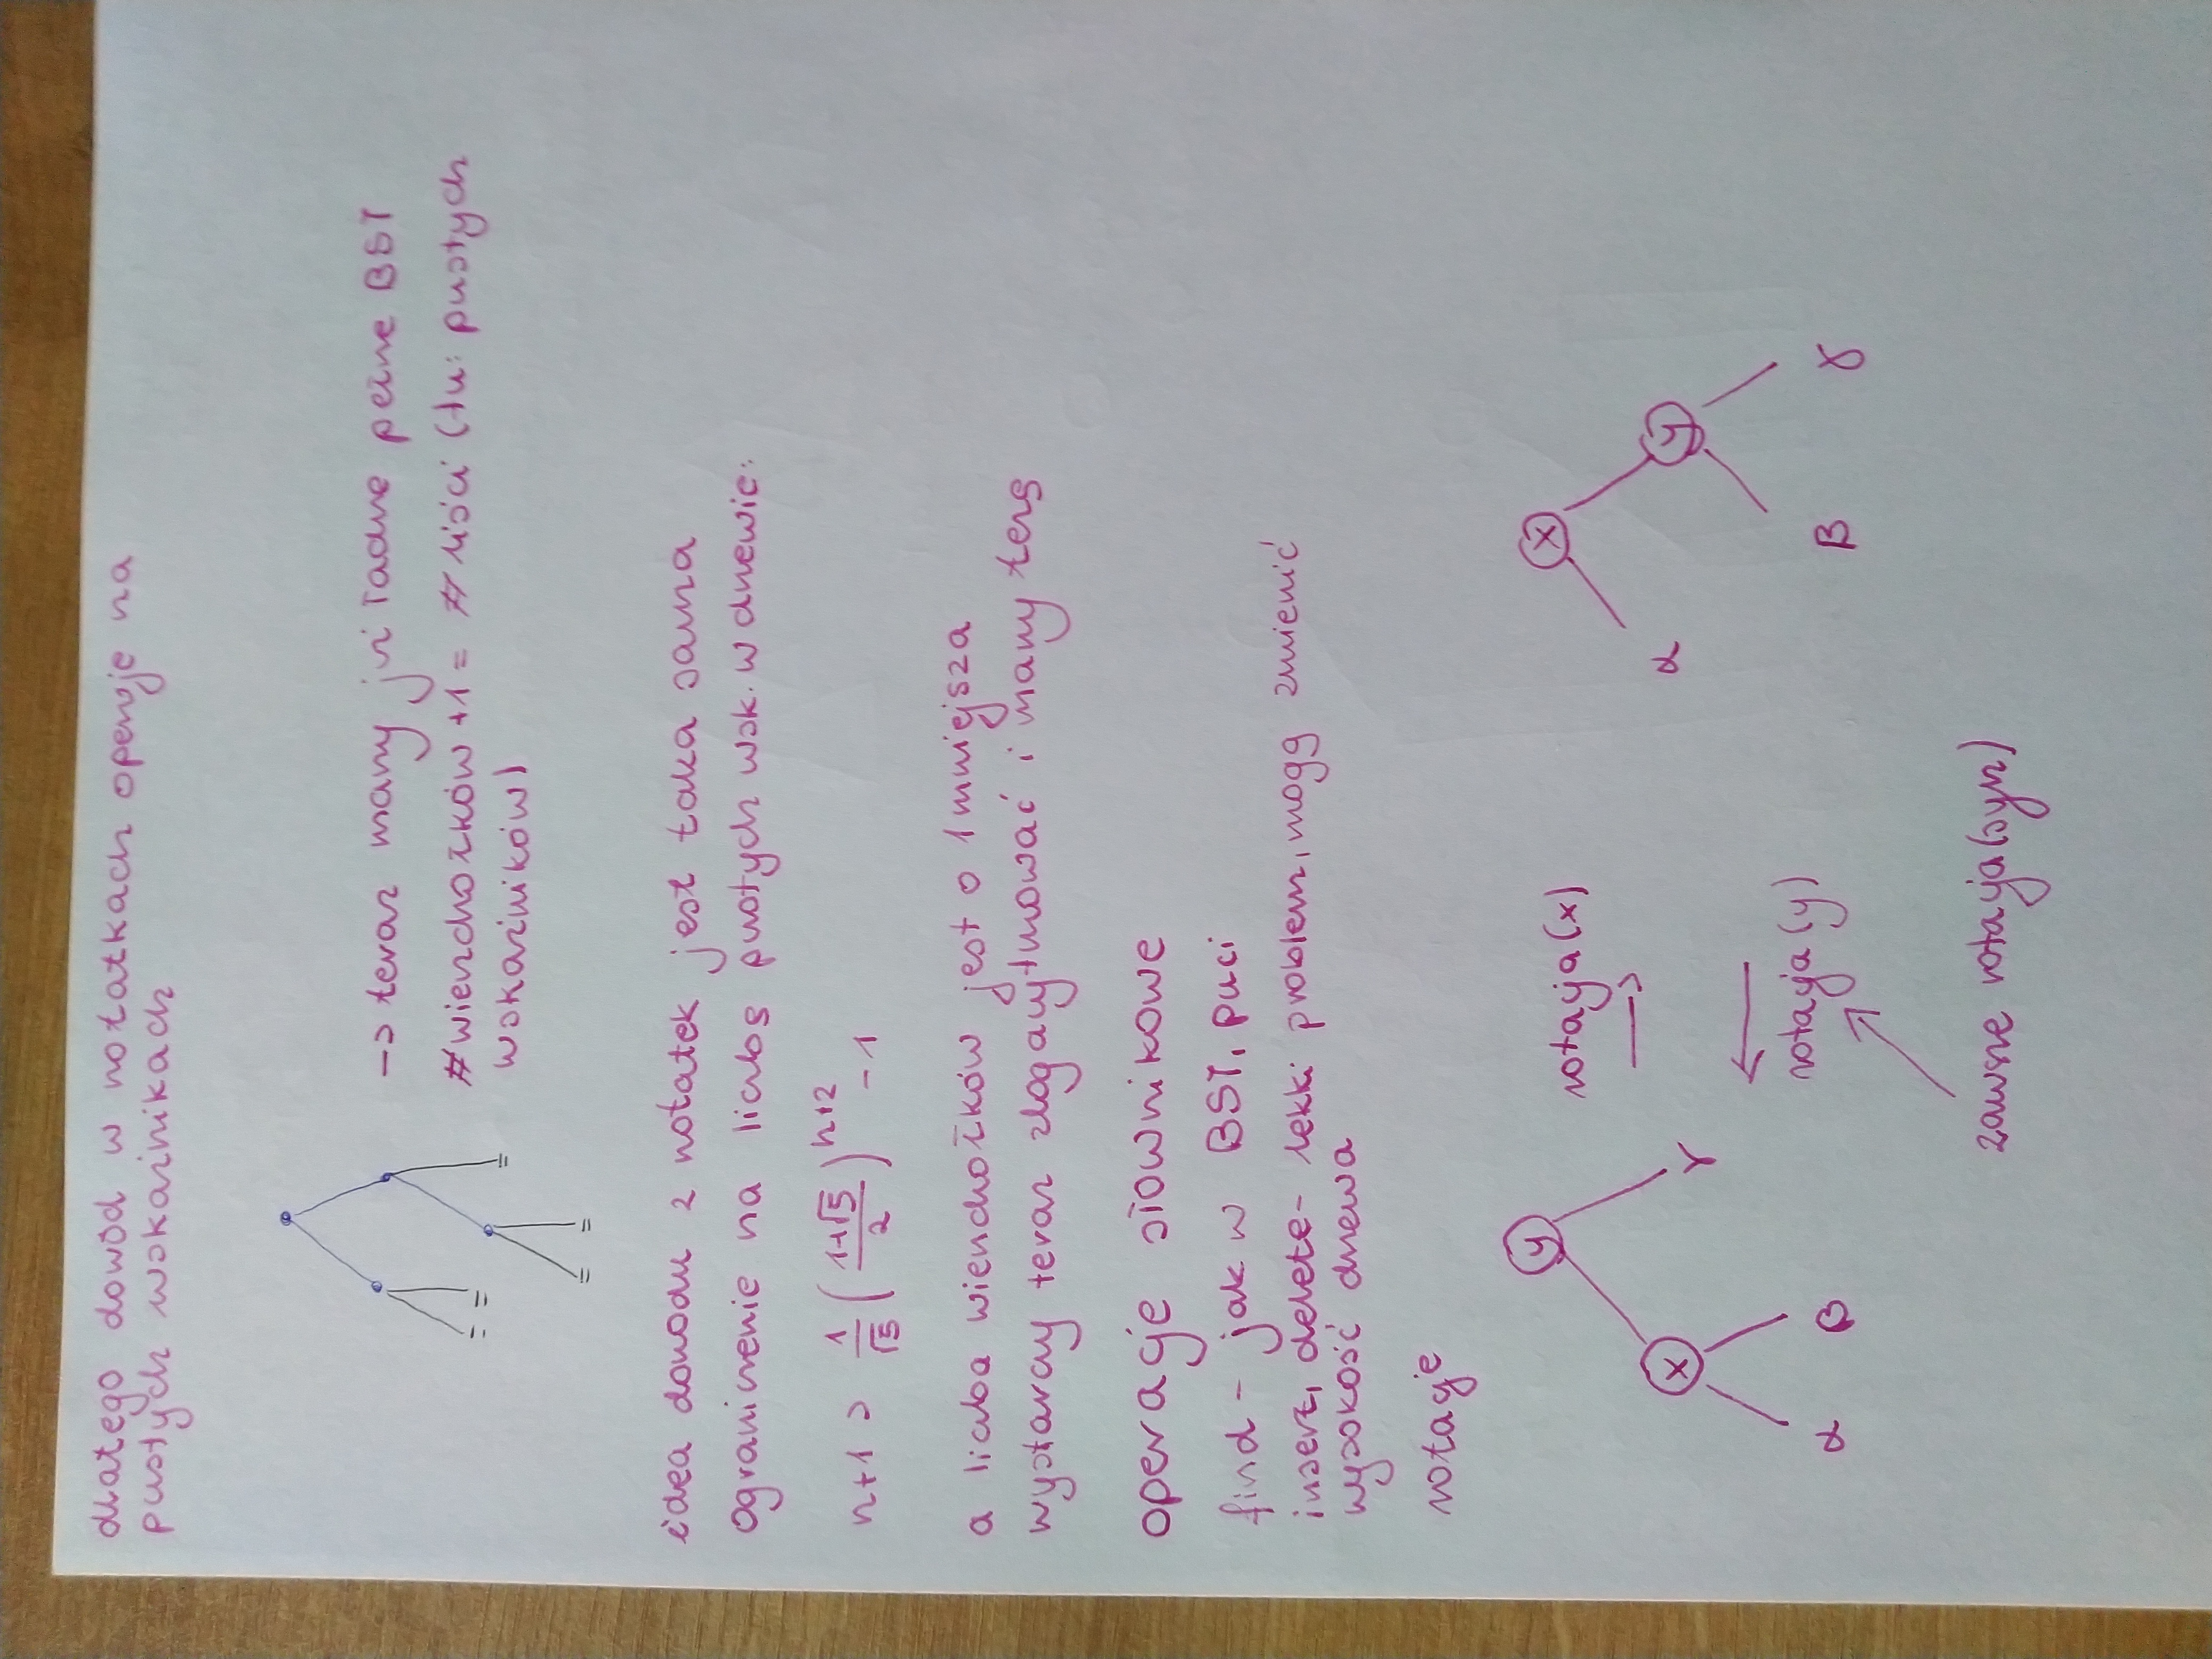 dlatego dowód w notatkach operuje na
pustych wskaźnikach
-> teraz mamy już ładne pełne BST
#wierzchołków +1 = # liści (tu: pustych
wskaźników)
= =
=
= =
idea dowodu z notatek jest taka sama
ograniczenie na liczbę pustych wsk. w drzewie:
n+1 > 1/√5 ((1+√5)/2)^(h+2) - 1
a liczba wierzchołków jest o 1 mniejsza
wystarczy teraz zlogarytmować i mamy tezę
operacje słownikowe
find - jak w BST,
insert, delete - lekki problem, mogą zmienić
wysokość drzewa
rotacje
y
x γ
α β
rotacja(x)
→
←
rotacja(y)
zawsze rotacja(syn)
x
α y
β γ